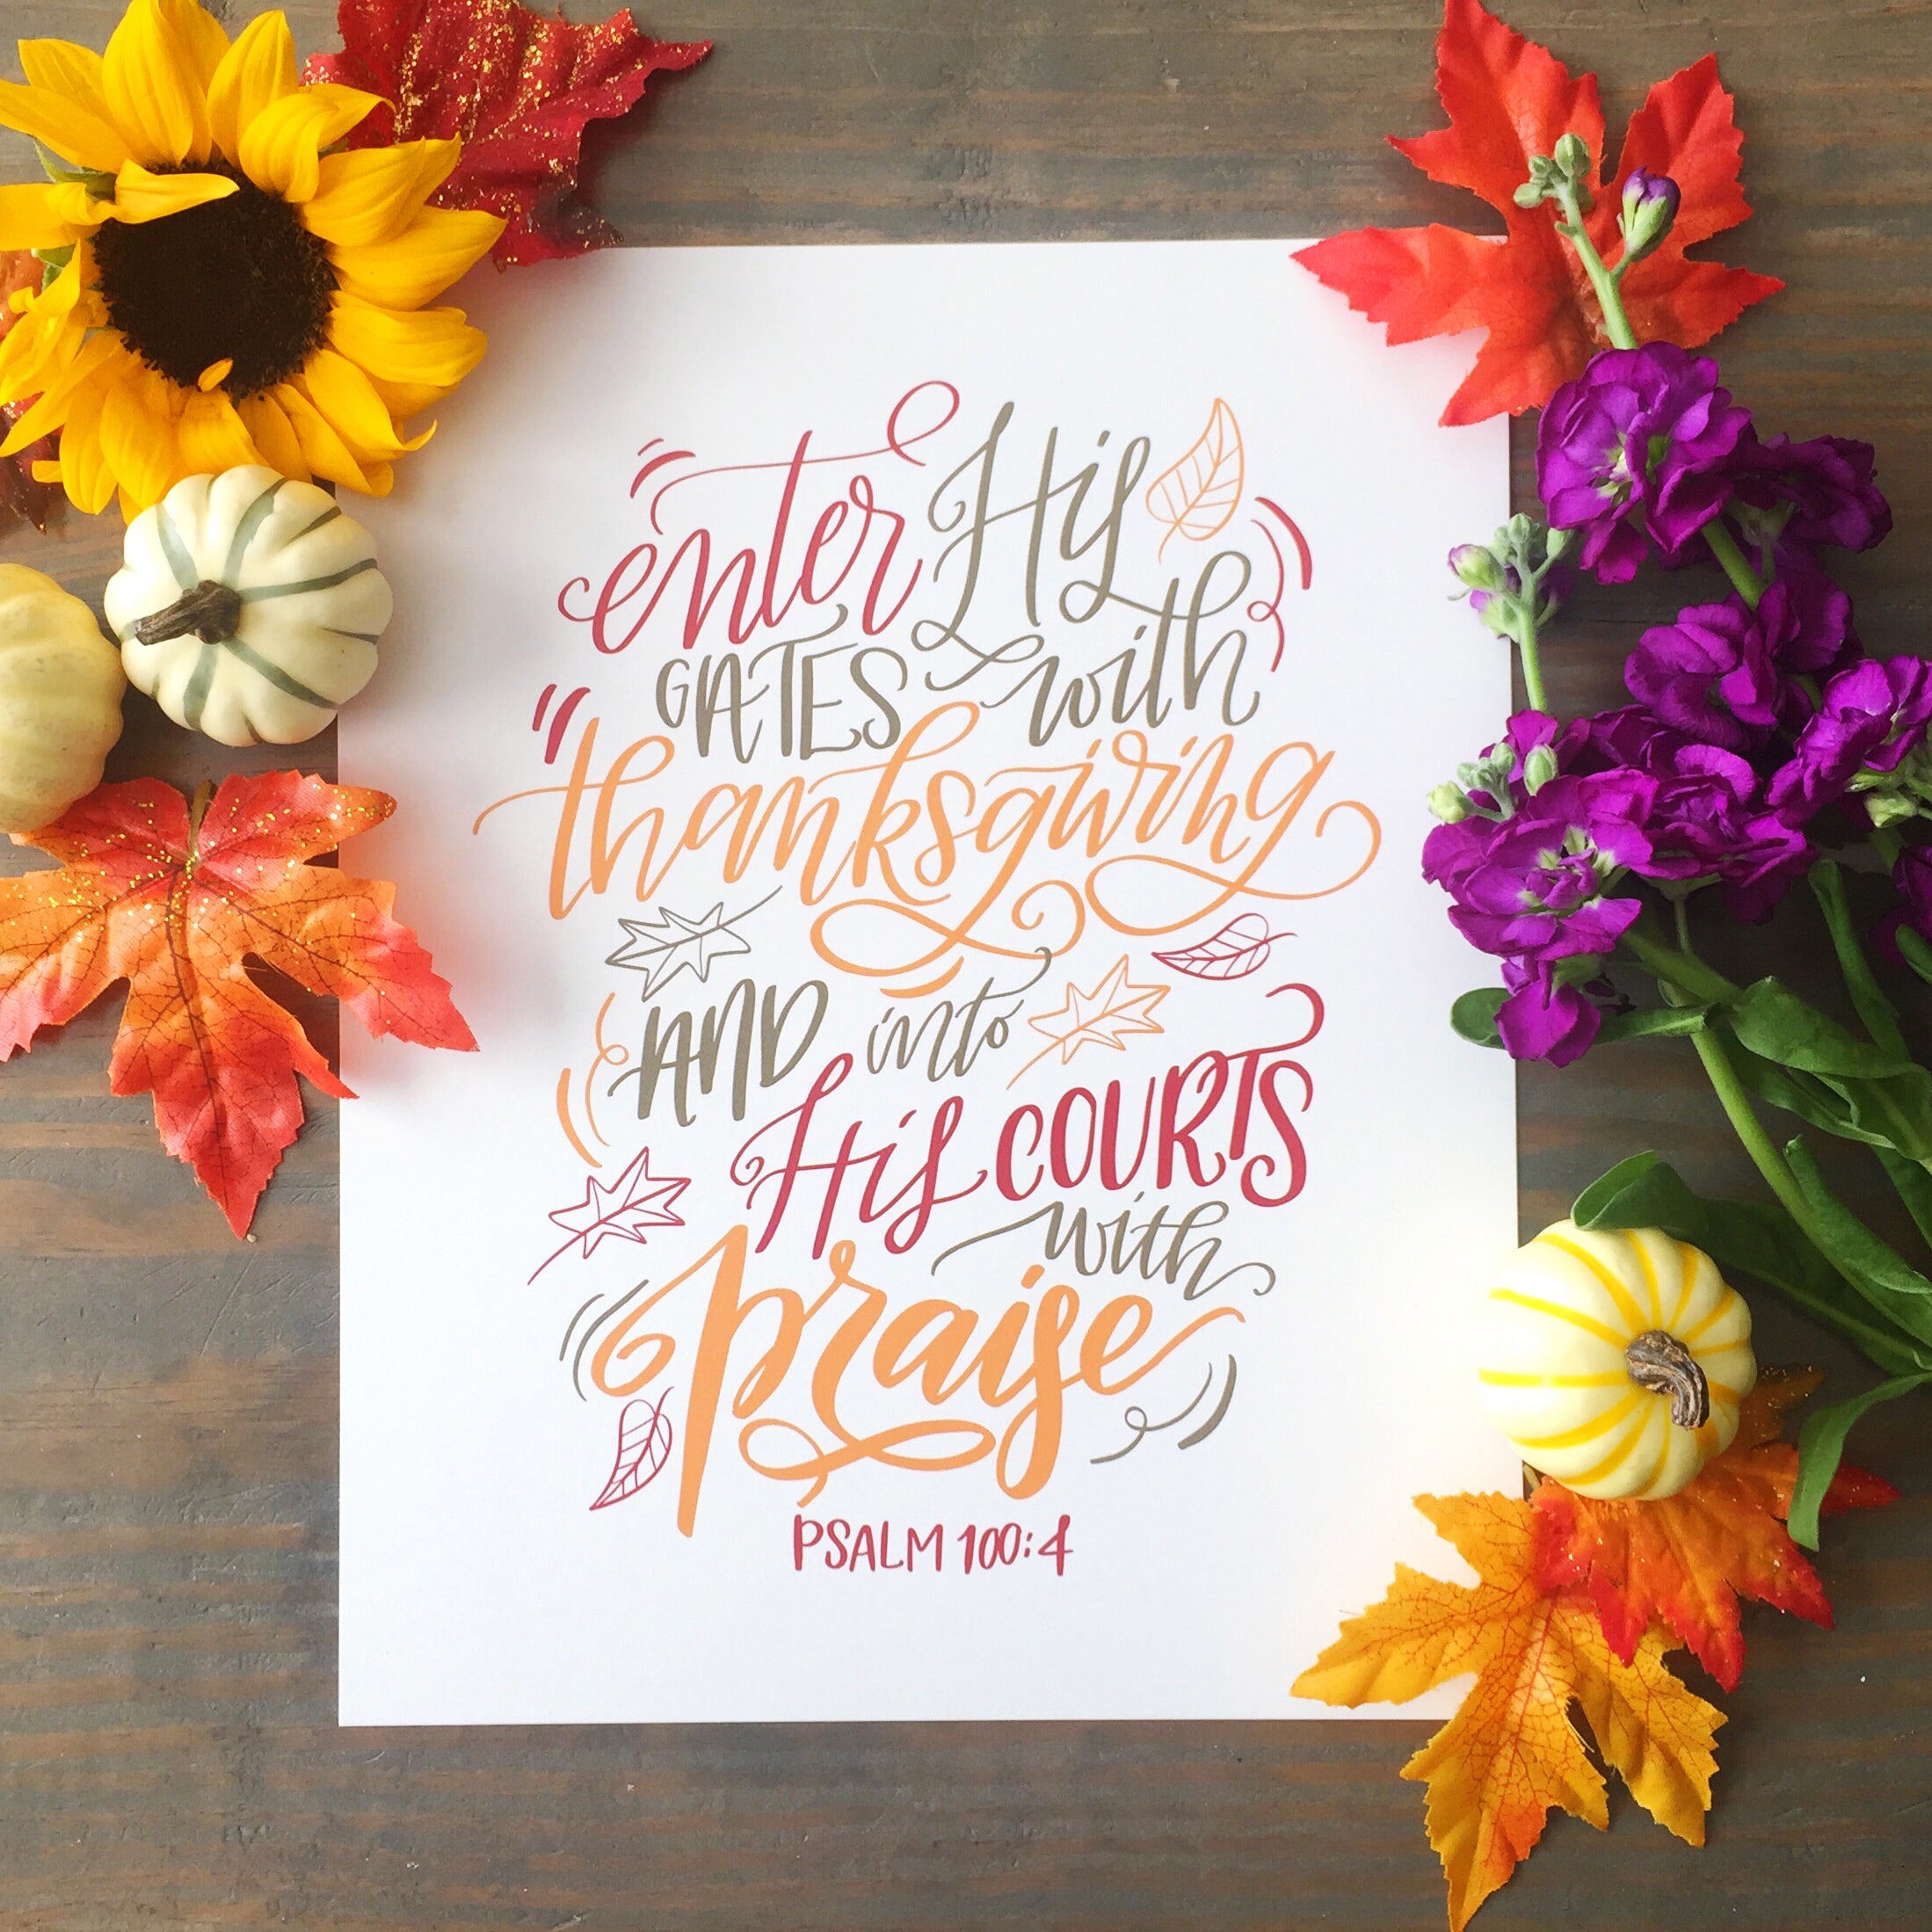 enter His
GATES with
thanksgiving
AND into
His COURTS
with
praise
PSALM 100:4